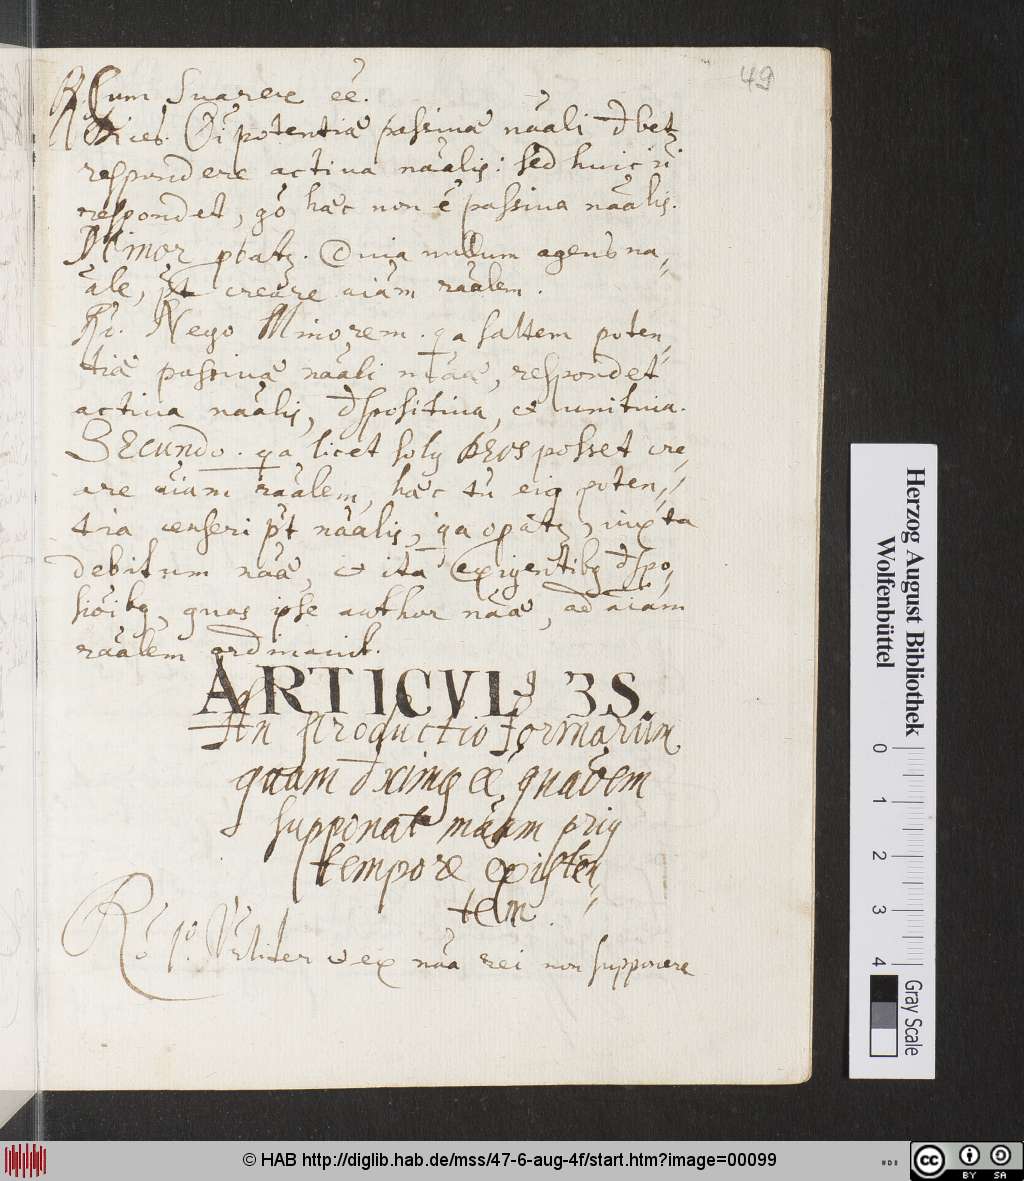 49
R. Cum Suarex eē.
Dices. Oī potentiæ passiuæ nāali đbetȝ
respondere actiua nāalis: sed huic nō
respondet, gō hæc non ē passiua nāalis.
Minor pbatȝ. Quia nullum agens na,,
āle, pt creāre aīam rāalem.
Rō. Nego Minorem. qa saltem poten,,
tiæ passiuæ nāali respondet
actiua nāalis, đspositiua, et unitiua.
SEcundo. qa licet solꝰ DEOS posset cre,,
are aīam rāalem, hæc tn̄ eiꝰ poten,,
tia censeri pt nāalis, qa opātȝ, iuxta
debitum naæ, et ita exigentibꝰ đspo,,
siōibꝰ, quas ipse author naæ, ad aīam
rāalem ordinauit.
ARTICVLꝰ 3S.
An productio formarum
quam đximꝰ eē,
supponat māam priꝰ
tempore existen,,
tem.
Rō 1º. Vrliter et ex nāa rei non supponere
Herzog August Bibliothek
Wolfenbüttel
0 1 2 3 4
Gray Scale
© HAB http://diglib.hab.de/mss/47-6-aug-4f/start.htm?image=00099
cc BY SA